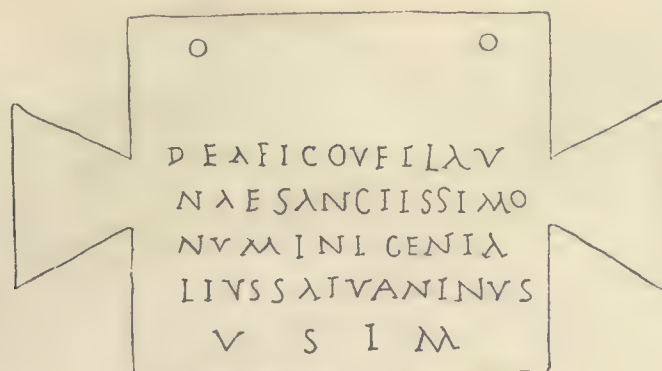 DEAFICOVEILAV
NAESANCIISSIMO
NVMINI CENIA
LIVSSATVANINVS
V S I M